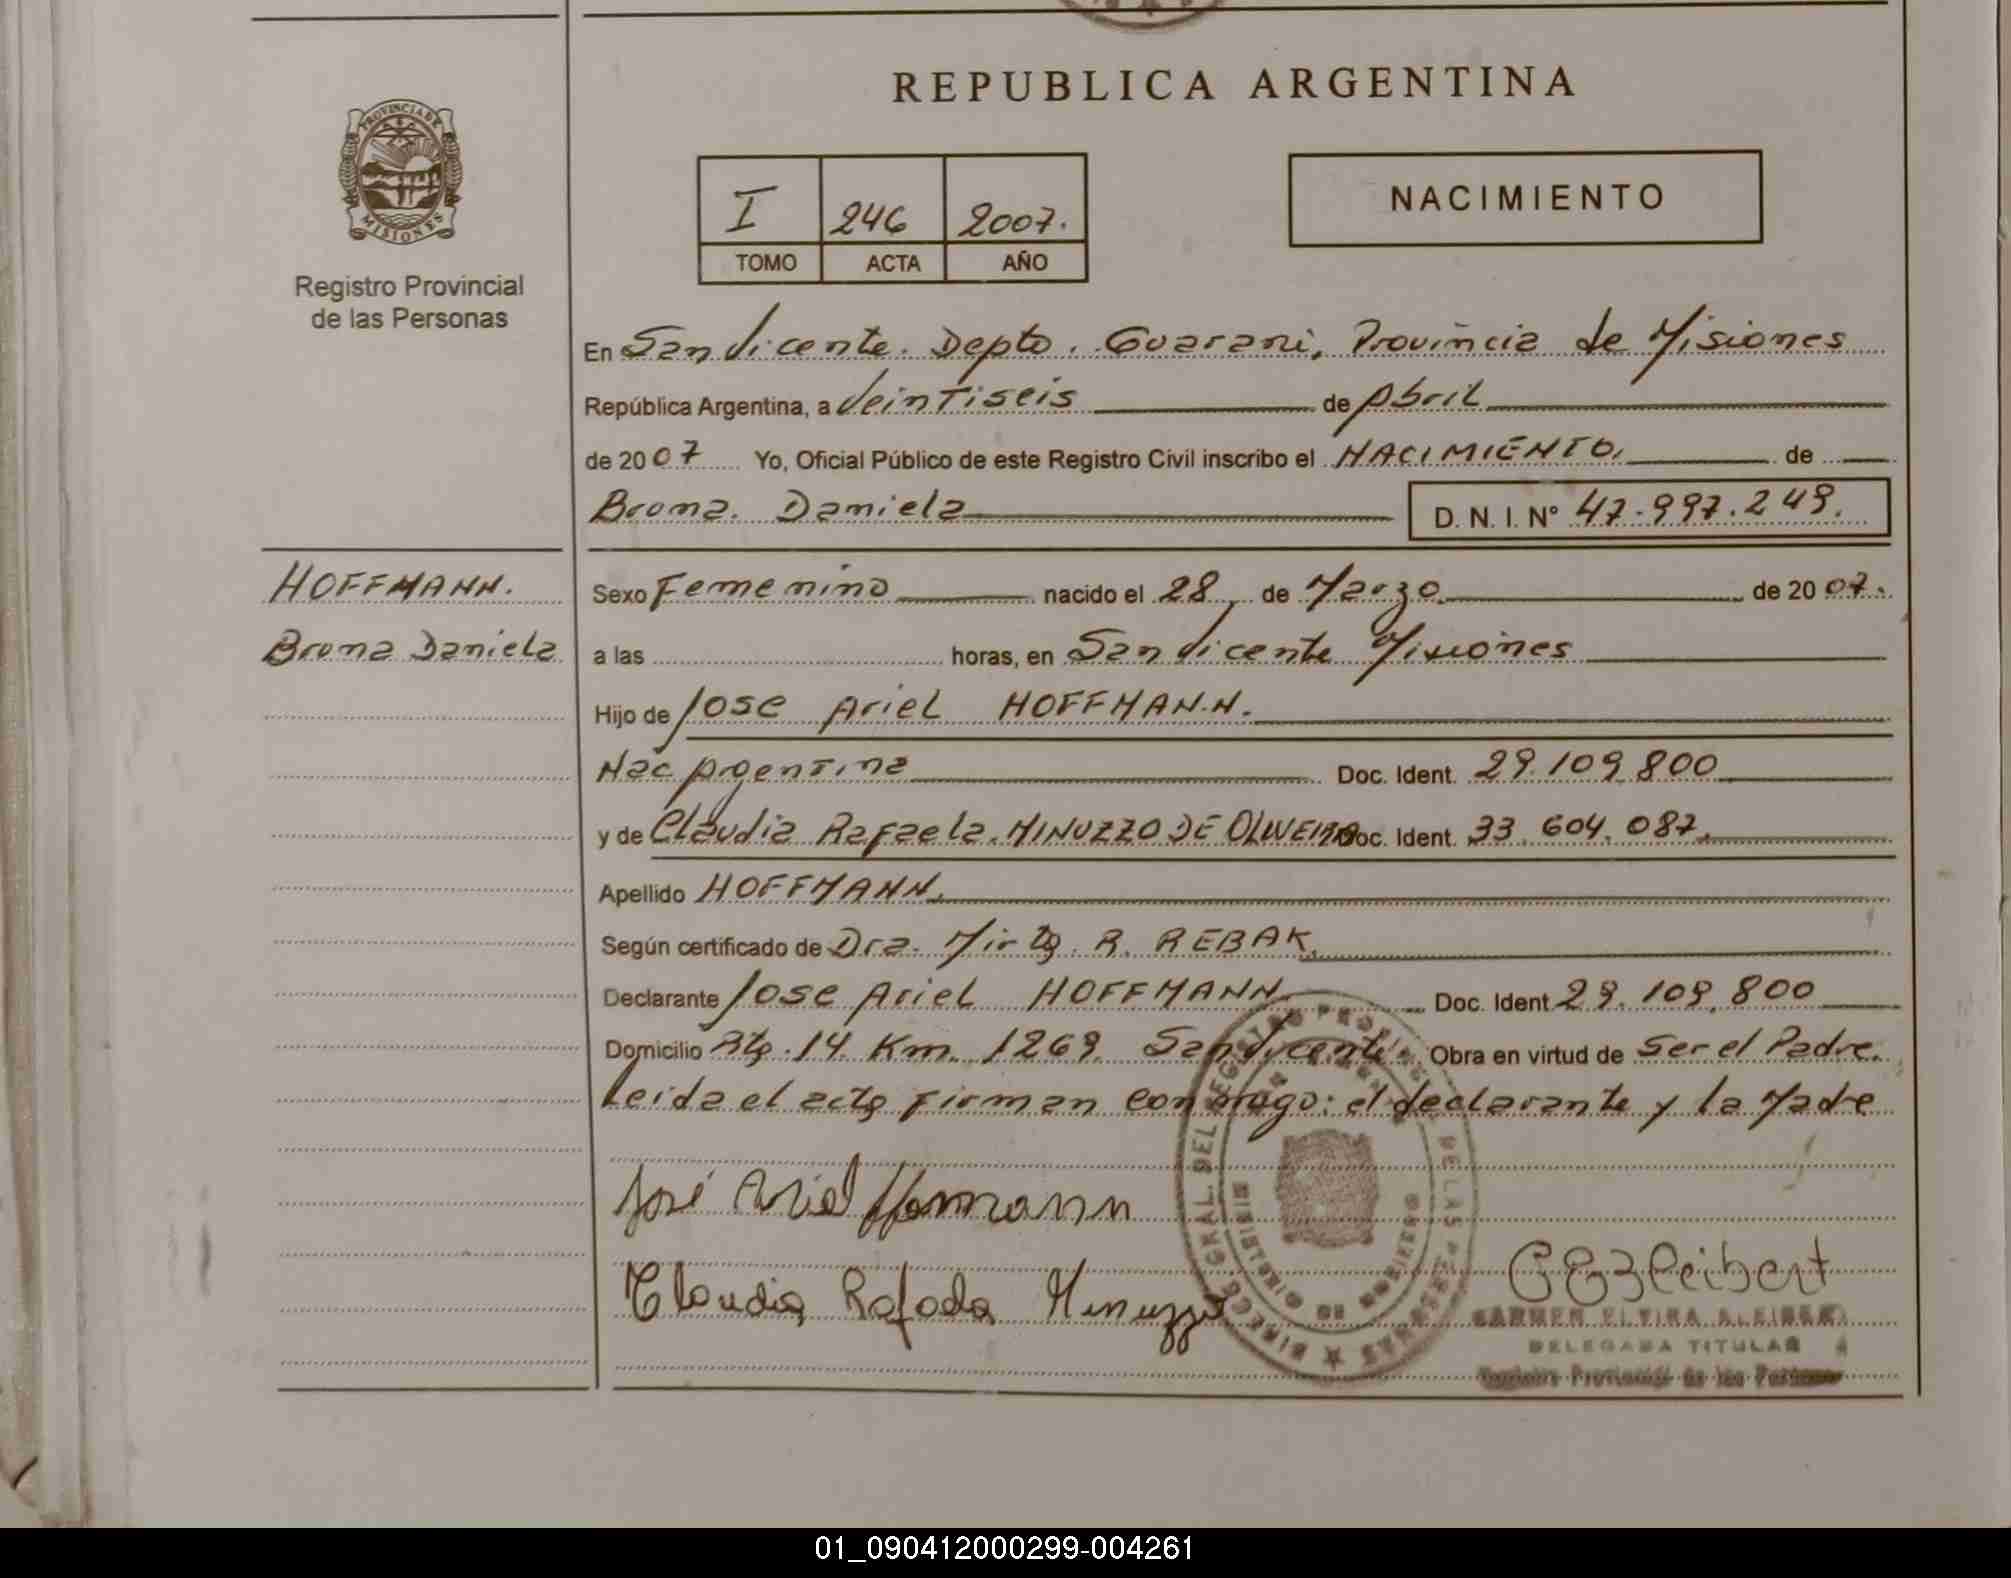 REPUBLICA ARGENTINA
PROVINCIA DE
MISIONES
Registro Provincial
de las Personas
I 246 2007.
TOMO ACTA AÑO
NACIMIENTO
En San Vicente. Depto. Guarani, Provincia de Misiones
República Argentina, a Veintiseis de Abril
de 2007 Yo, Oficial Público de este Registro Civil inscribo el NACIMIENTO. de
Bruna. Daniela D. N. I. Nº 47.997.249.
HOFFMANN.
Bruna Daniela
Sexo Femenino nacido el 28 de Marzo de 2007.
a las horas, en San Vicente Misiones
Hijo de Jose Ariel HOFFMANN.
Nac Argentina Doc. Ident. 29.109.800
y de Claudia Rafaela. MINUZZO DE OLIVEIRA Doc. Ident. 33.604.087.
Apellido HOFFMANN.
Según certificado de Dra. Mirta R. REBAK.
Declarante Jose Ariel HOFFMANN Doc. Ident 29.109.800
Domicilio Rta. 14 Km. 1269 San Vicente. Obra en virtud de Ser el Padre.
Leida el acta firman conmigo: el declarante y la Madre
José Ariel Hofmann
Claudia Rafaela Minuzzo
DELEGADA TITULAR
Registro Provincial de las Personas
01_090412000299-004261